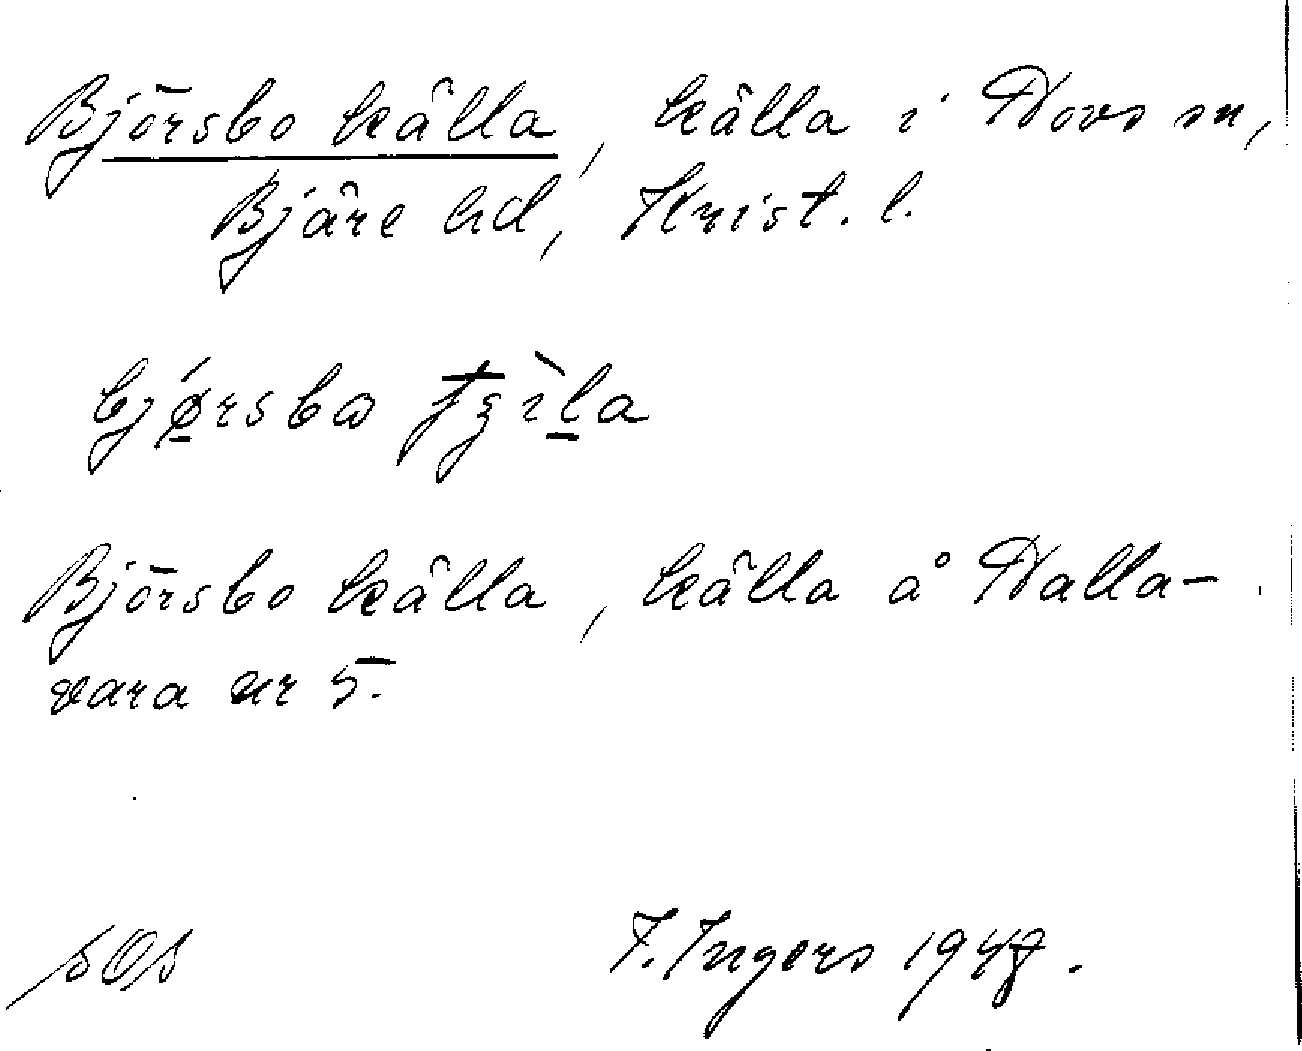 Björsbo källa, källa i Hovs sn,
Bjäre hd, Krist. l.
Björsbo källa, källa å Halla-
vara nr 5.
SOS F. Ingers 1948.